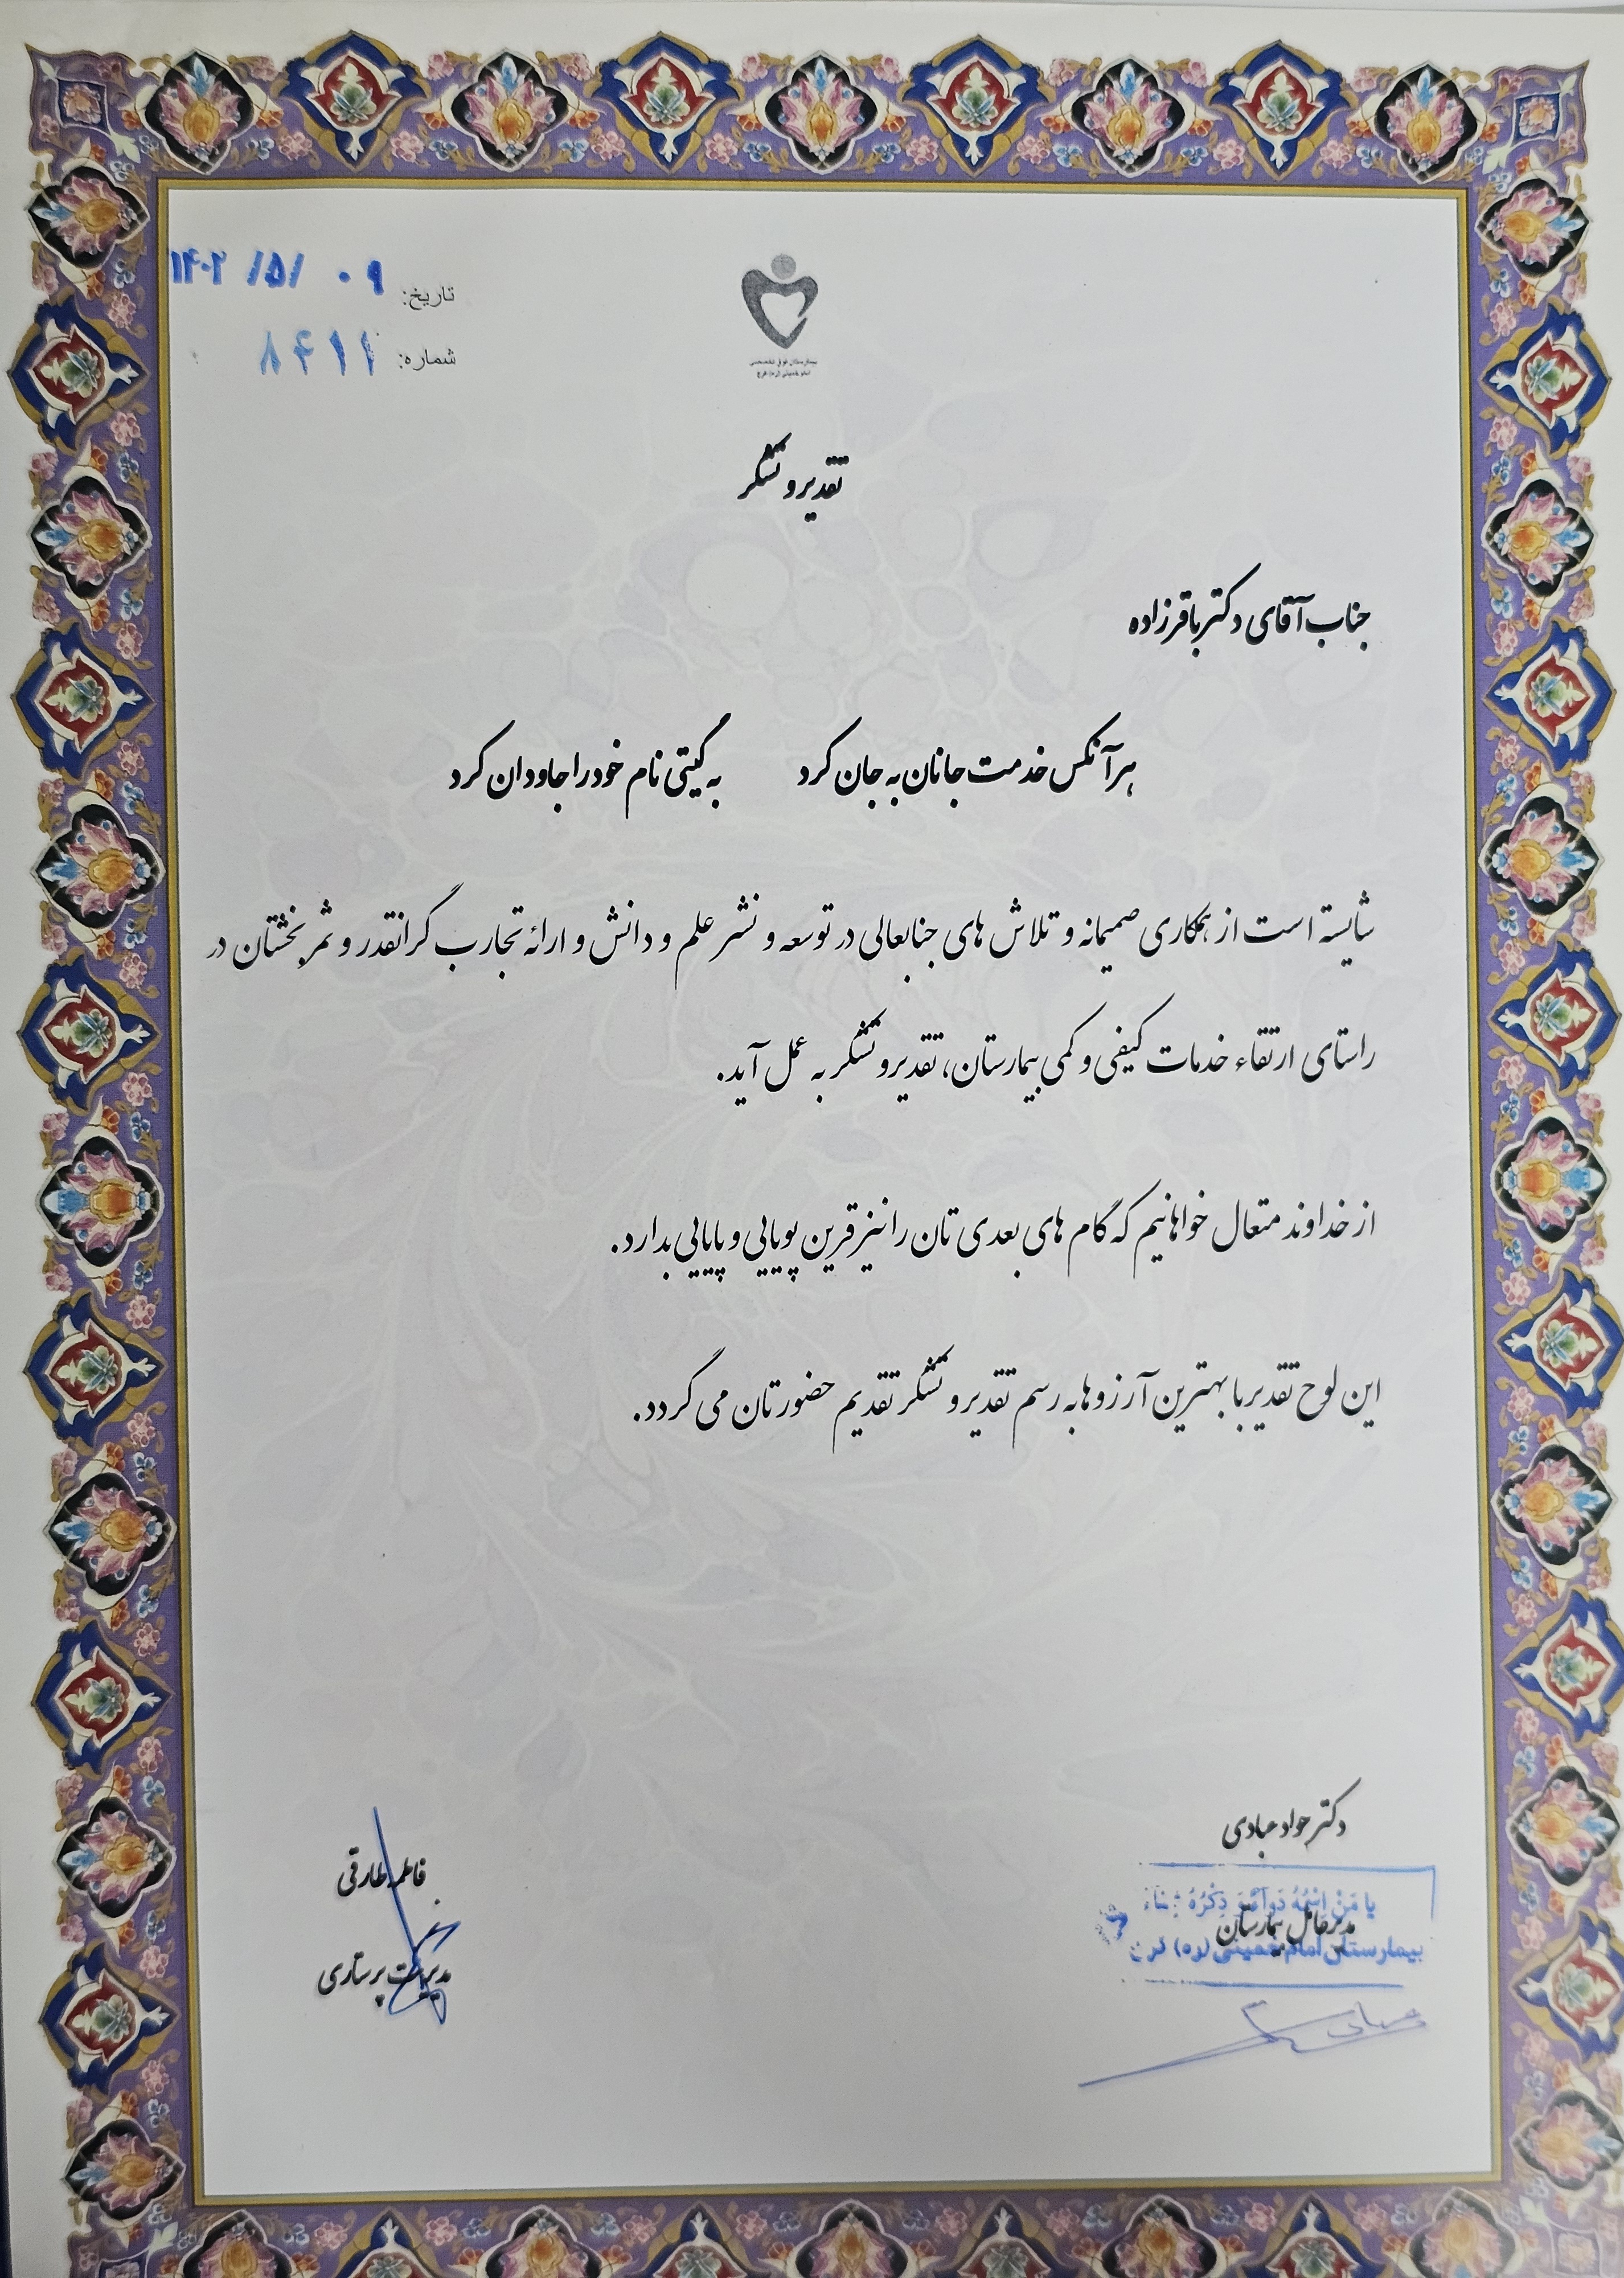 تاریخ: ۱۴۰۲ /۵/ ۰۹
شماره: ۸۴۱۱
بیمارستان فوق تخصصی
امام خمینی (ره) کرج
تقدیر و تشکر
جناب آقای دکتر باقرزاده
هر آنکس خدمت جانان به جان کرد به گیتی نام خود را جاودان کرد
شایسته است از همکاری صمیمانه و تلاش های جنابعالی در توسعه و نشر علم و دانش و ارائه تجارب گرانقدر و ثمربخشتان در
راستای ارتقاء خدمات کیفی و کمی بیمارستان، تقدیر و تشکر به عمل آید.
از خداوند متعال خواهانیم که گام های بعدی تان را نیز قرین پویایی و پایایی بدارد.
این لوح تقدیر با بهترین آرزوها به رسم تقدیر و تشکر تقدیم حضورتان می گردد.
دکتر جواد عبادی
یا مَنْ اِسْمُهُ دَواءٌ وَ ذِکْرُهُ شِفاء
مدیرعامل بیمارستان
بیمارستان امام خمینی (ره) کرج
فاطمه طارقی
مدیریت پرستاری